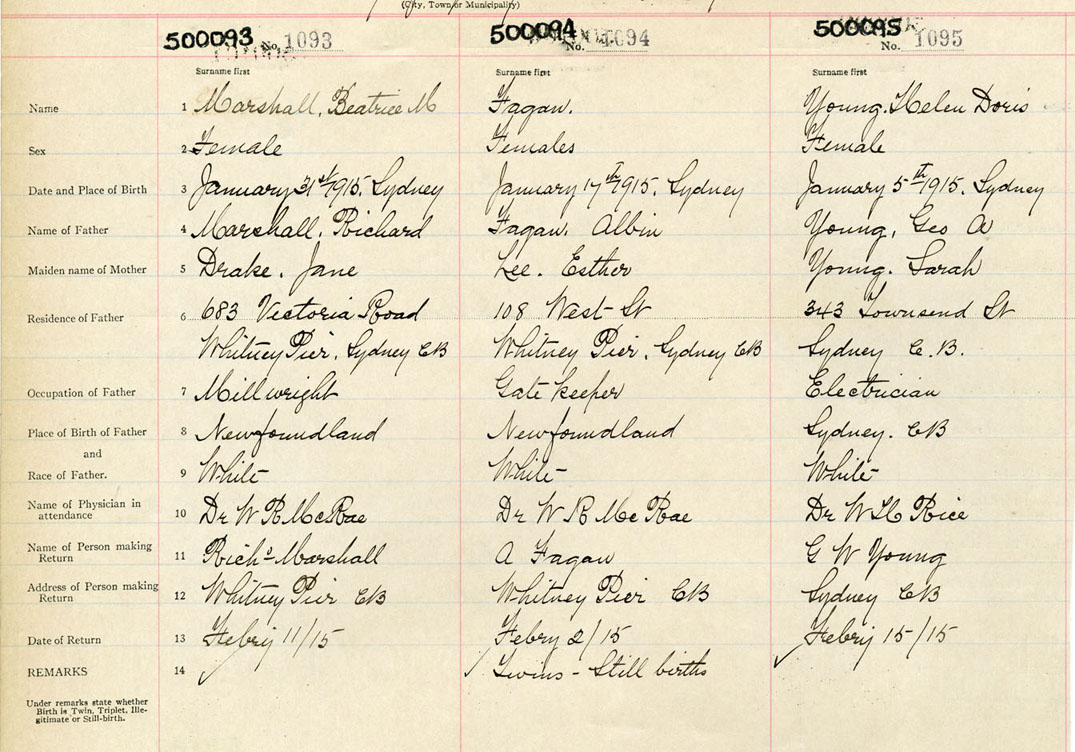 (City, Town or Municipality)
500093 No. 1093 500094 No. 1094 500095 No. 1095
Surname first Surname first Surname first
Name 1 Marshall, Beatrice M Fagan. Young. Helen Doris
Sex 2 Female Females Female
Date and Place of Birth 3 January 31st 1915. Sydney January 17th 1915. Sydney January 5th 1915. Sydney
Name of Father 4 Marshall, Richard Fagan, Albin Young, Geo A
Maiden name of Mother 5 Drake. Jane Lee. Esther Young. Sarah
Residence of Father 6 683 Victoria Road 108 West St 343 Townsend St
Whitney Pier, Sydney CB Whitney Pier, Sydney CB Sydney C.B.
Occupation of Father 7 Millwright Gate keeper Electrician
Place of Birth of Father 8 Newfoundland Newfoundland Sydney. CB
and
Race of Father. 9 White White White
Name of Physician in attendance 10 Dr W R McRae Dr W R McRae Dr W H Rice
Name of Person making Return 11 Richd Marshall A Fagan G W Young
Address of Person making Return 12 Whitney Pier CB Whitney Pier CB Sydney CB
Date of Return 13 Febry 11/15 Febry 2/15 Febry 15/15
REMARKS 14 Twins - Still births
Under remarks state whether
Birth is Twin, Triplet, Ille-
gitimate or Still-birth.